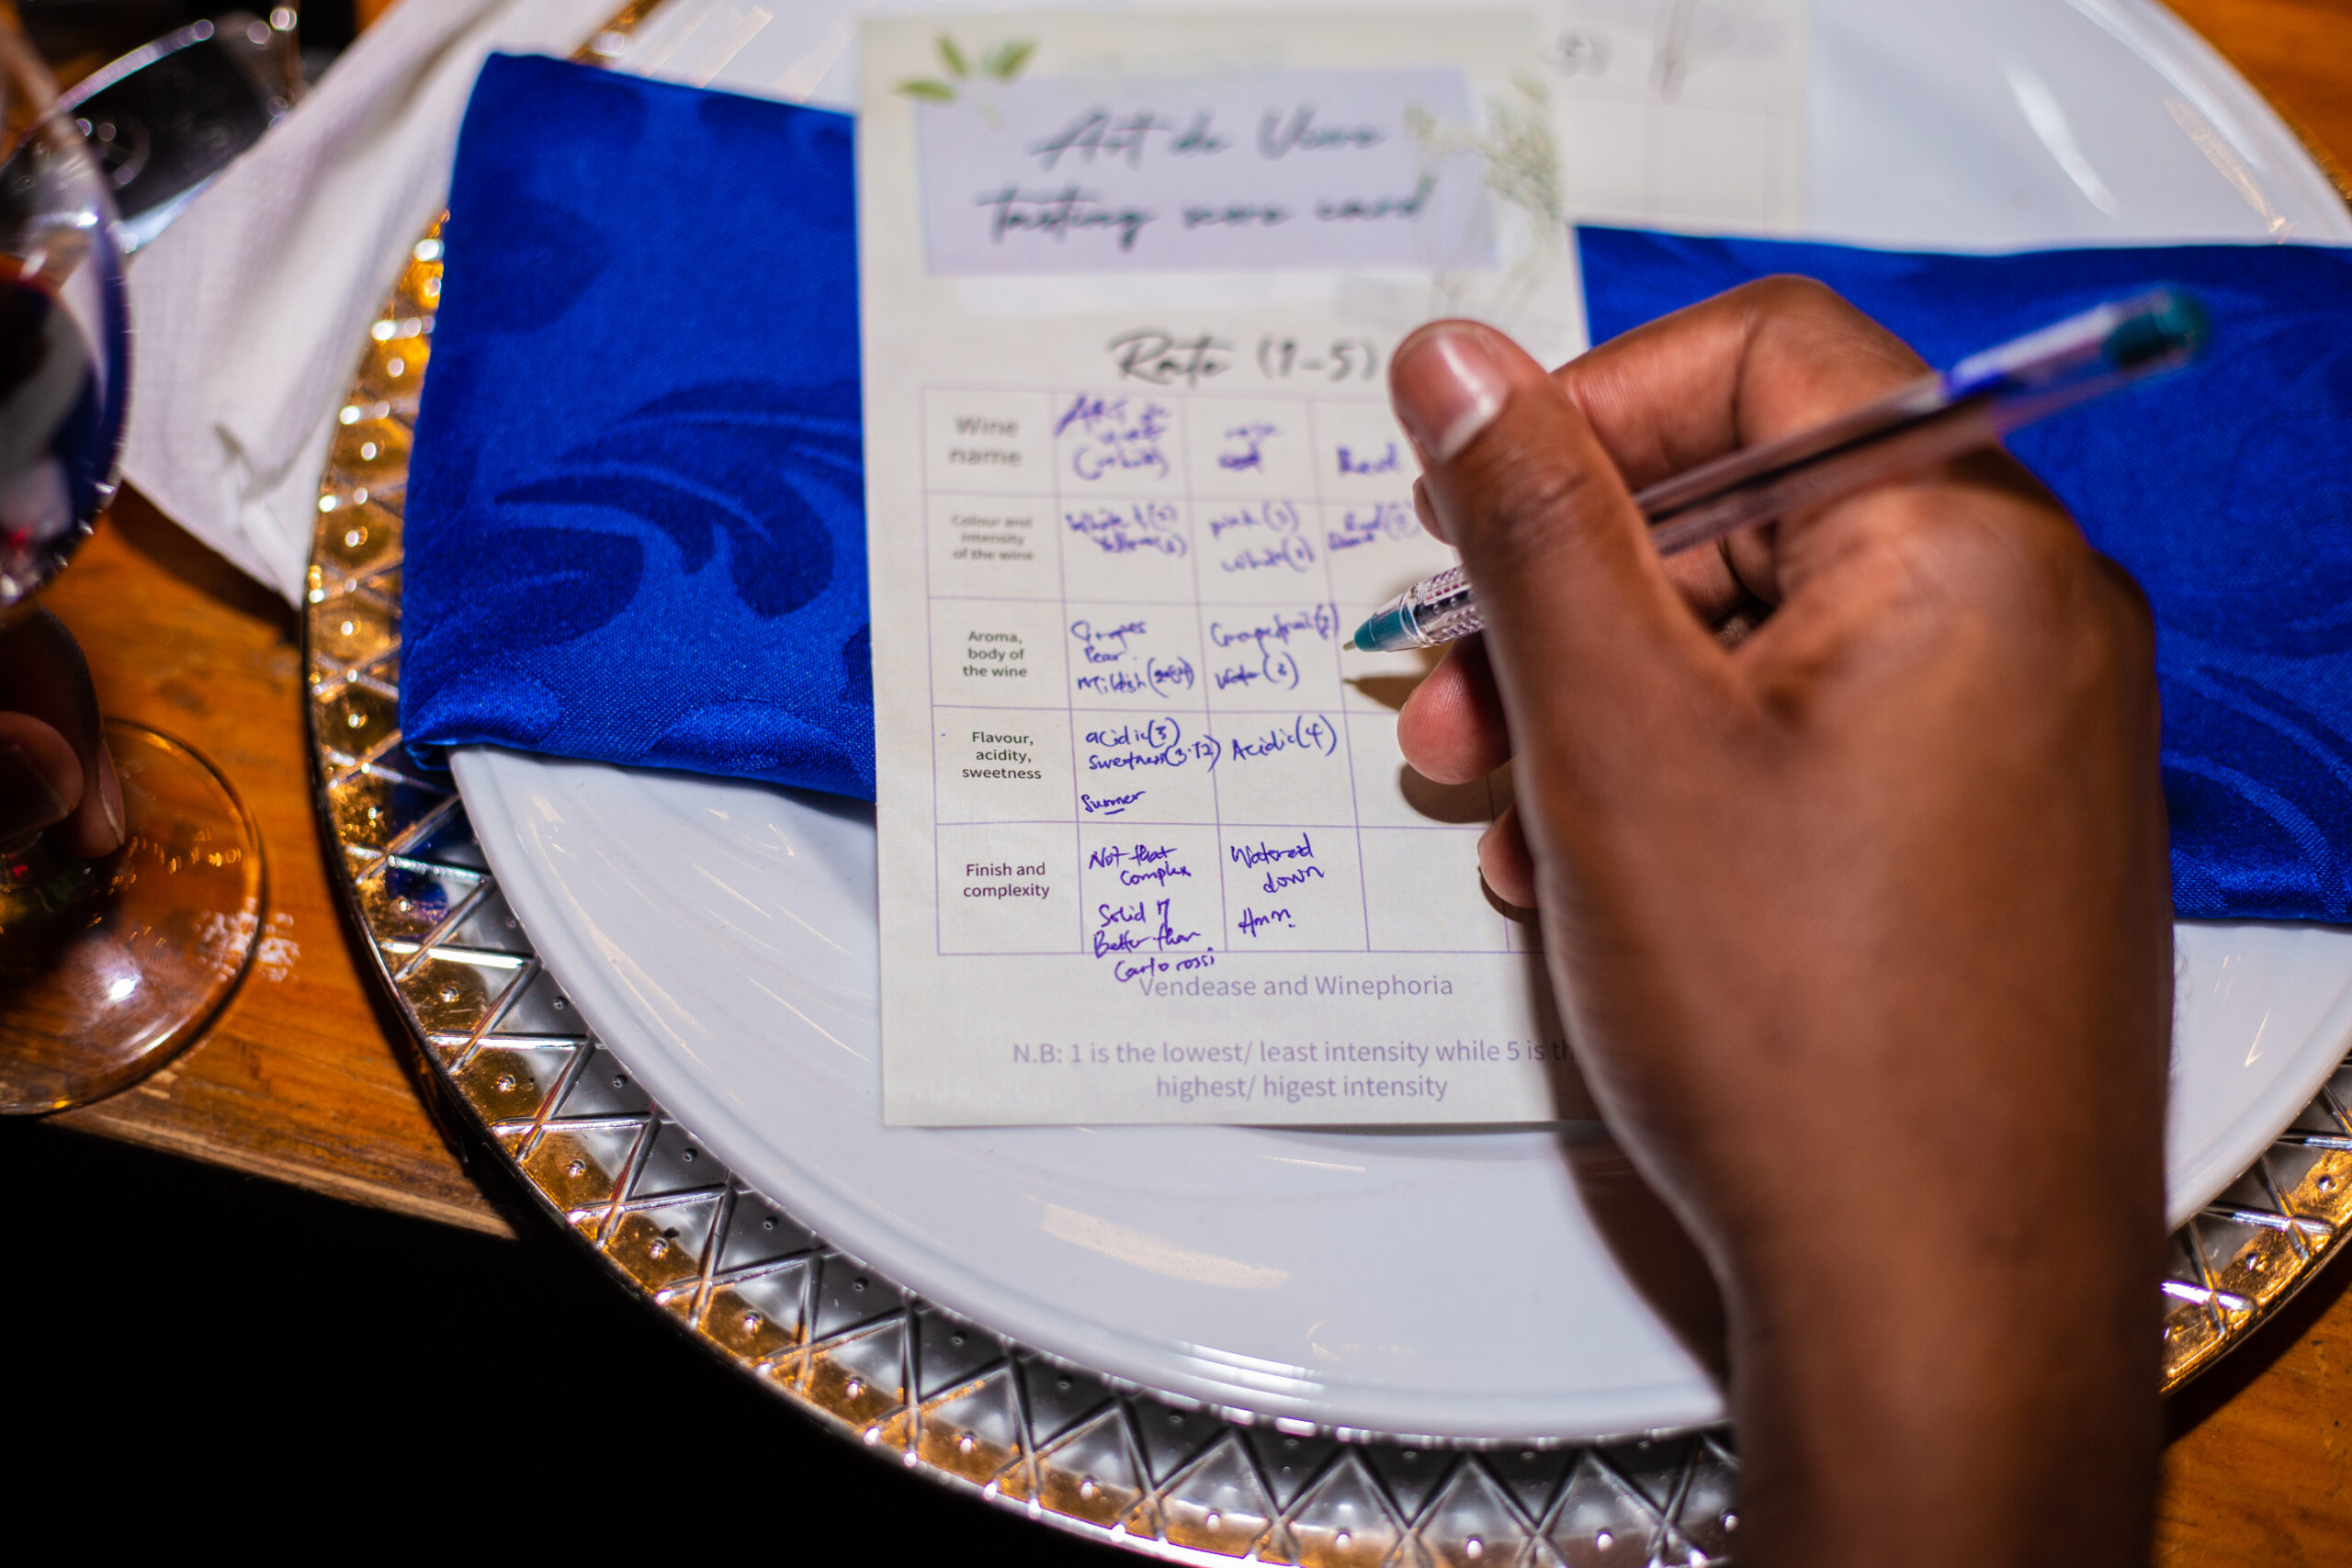 Art de Vine
tasting score card
Rate (1-5)
Wine
name
(white)
Red
Colour and
intensity
of the wine
White
Yellow
pink (3)
white
Aroma,
body of
the wine
Grapes
Pear
Mildish
Grapefruit
Water (2)
Flavour,
acidity,
sweetness
acidic(3)
Sweetness(3.72)
Summer
Acidic(4)
Finish and
complexity
Not that
Complex
Solid 7
Better than
Carlo rossi
Watered
down
Hmm?
Vendease and Winephoria
N.B: 1 is the lowest/ least intensity while 5 is th
highest/ higest intensity